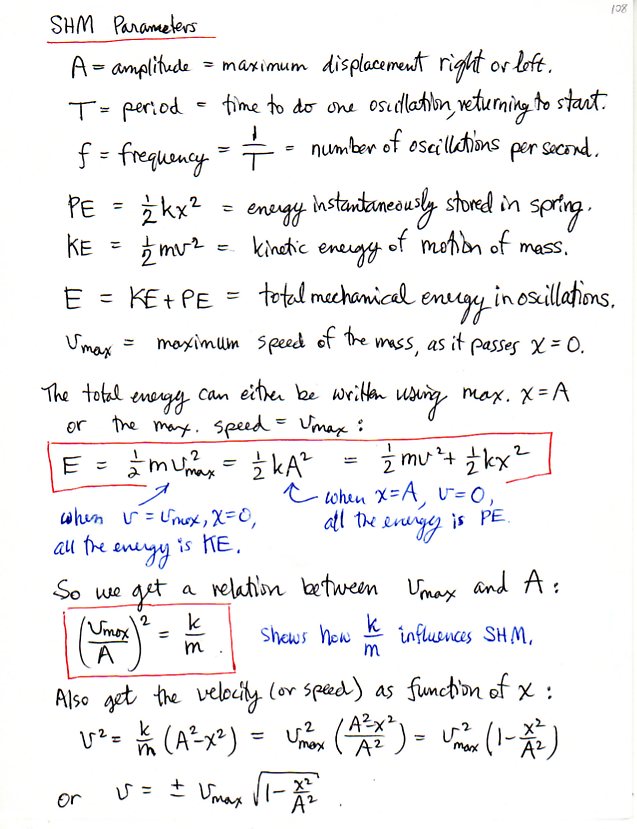 108
SHM Parameters
A = amplitude = maximum displacement right or left.
T = period = time to do one oscillation, returning to start.
f = frequency = 1/T = number of oscillations per second.
PE = ½kx² = energy instantaneously stored in spring.
KE = ½mv² = kinetic energy of motion of mass.
E = KE + PE = total mechanical energy in oscillations.
v_max = maximum speed of the mass, as it passes x = 0.
The total energy can either be written using max. x = A
or the max. speed = v_max :
E = ½mv²_max = ½kA² = ½mv² + ½kx²
when v = v_max, x = 0,
all the energy is KE.
when x = A, v = 0,
all the energy is PE.
So we get a relation between v_max and A :
(v_max/A)² = k/m .
Shows how k/m influences SHM.
Also get the velocity (or speed) as function of x :
v² = k/m (A²-x²) = v²_max ((A²-x²)/A²) = v²_max (1 - x²/A²)
or v = ± v_max √(1 - x²/A²) .